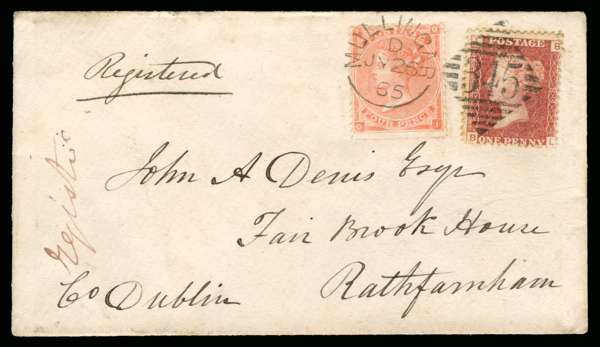 Registered
MULLINGAR
D
JY 25
65
FOUR PENCE
POSTAGE
B
345
B ONE PENNY L
Registd
John A Denis Esqr
Fair Brook House
Rathfarnham
Co Dublin